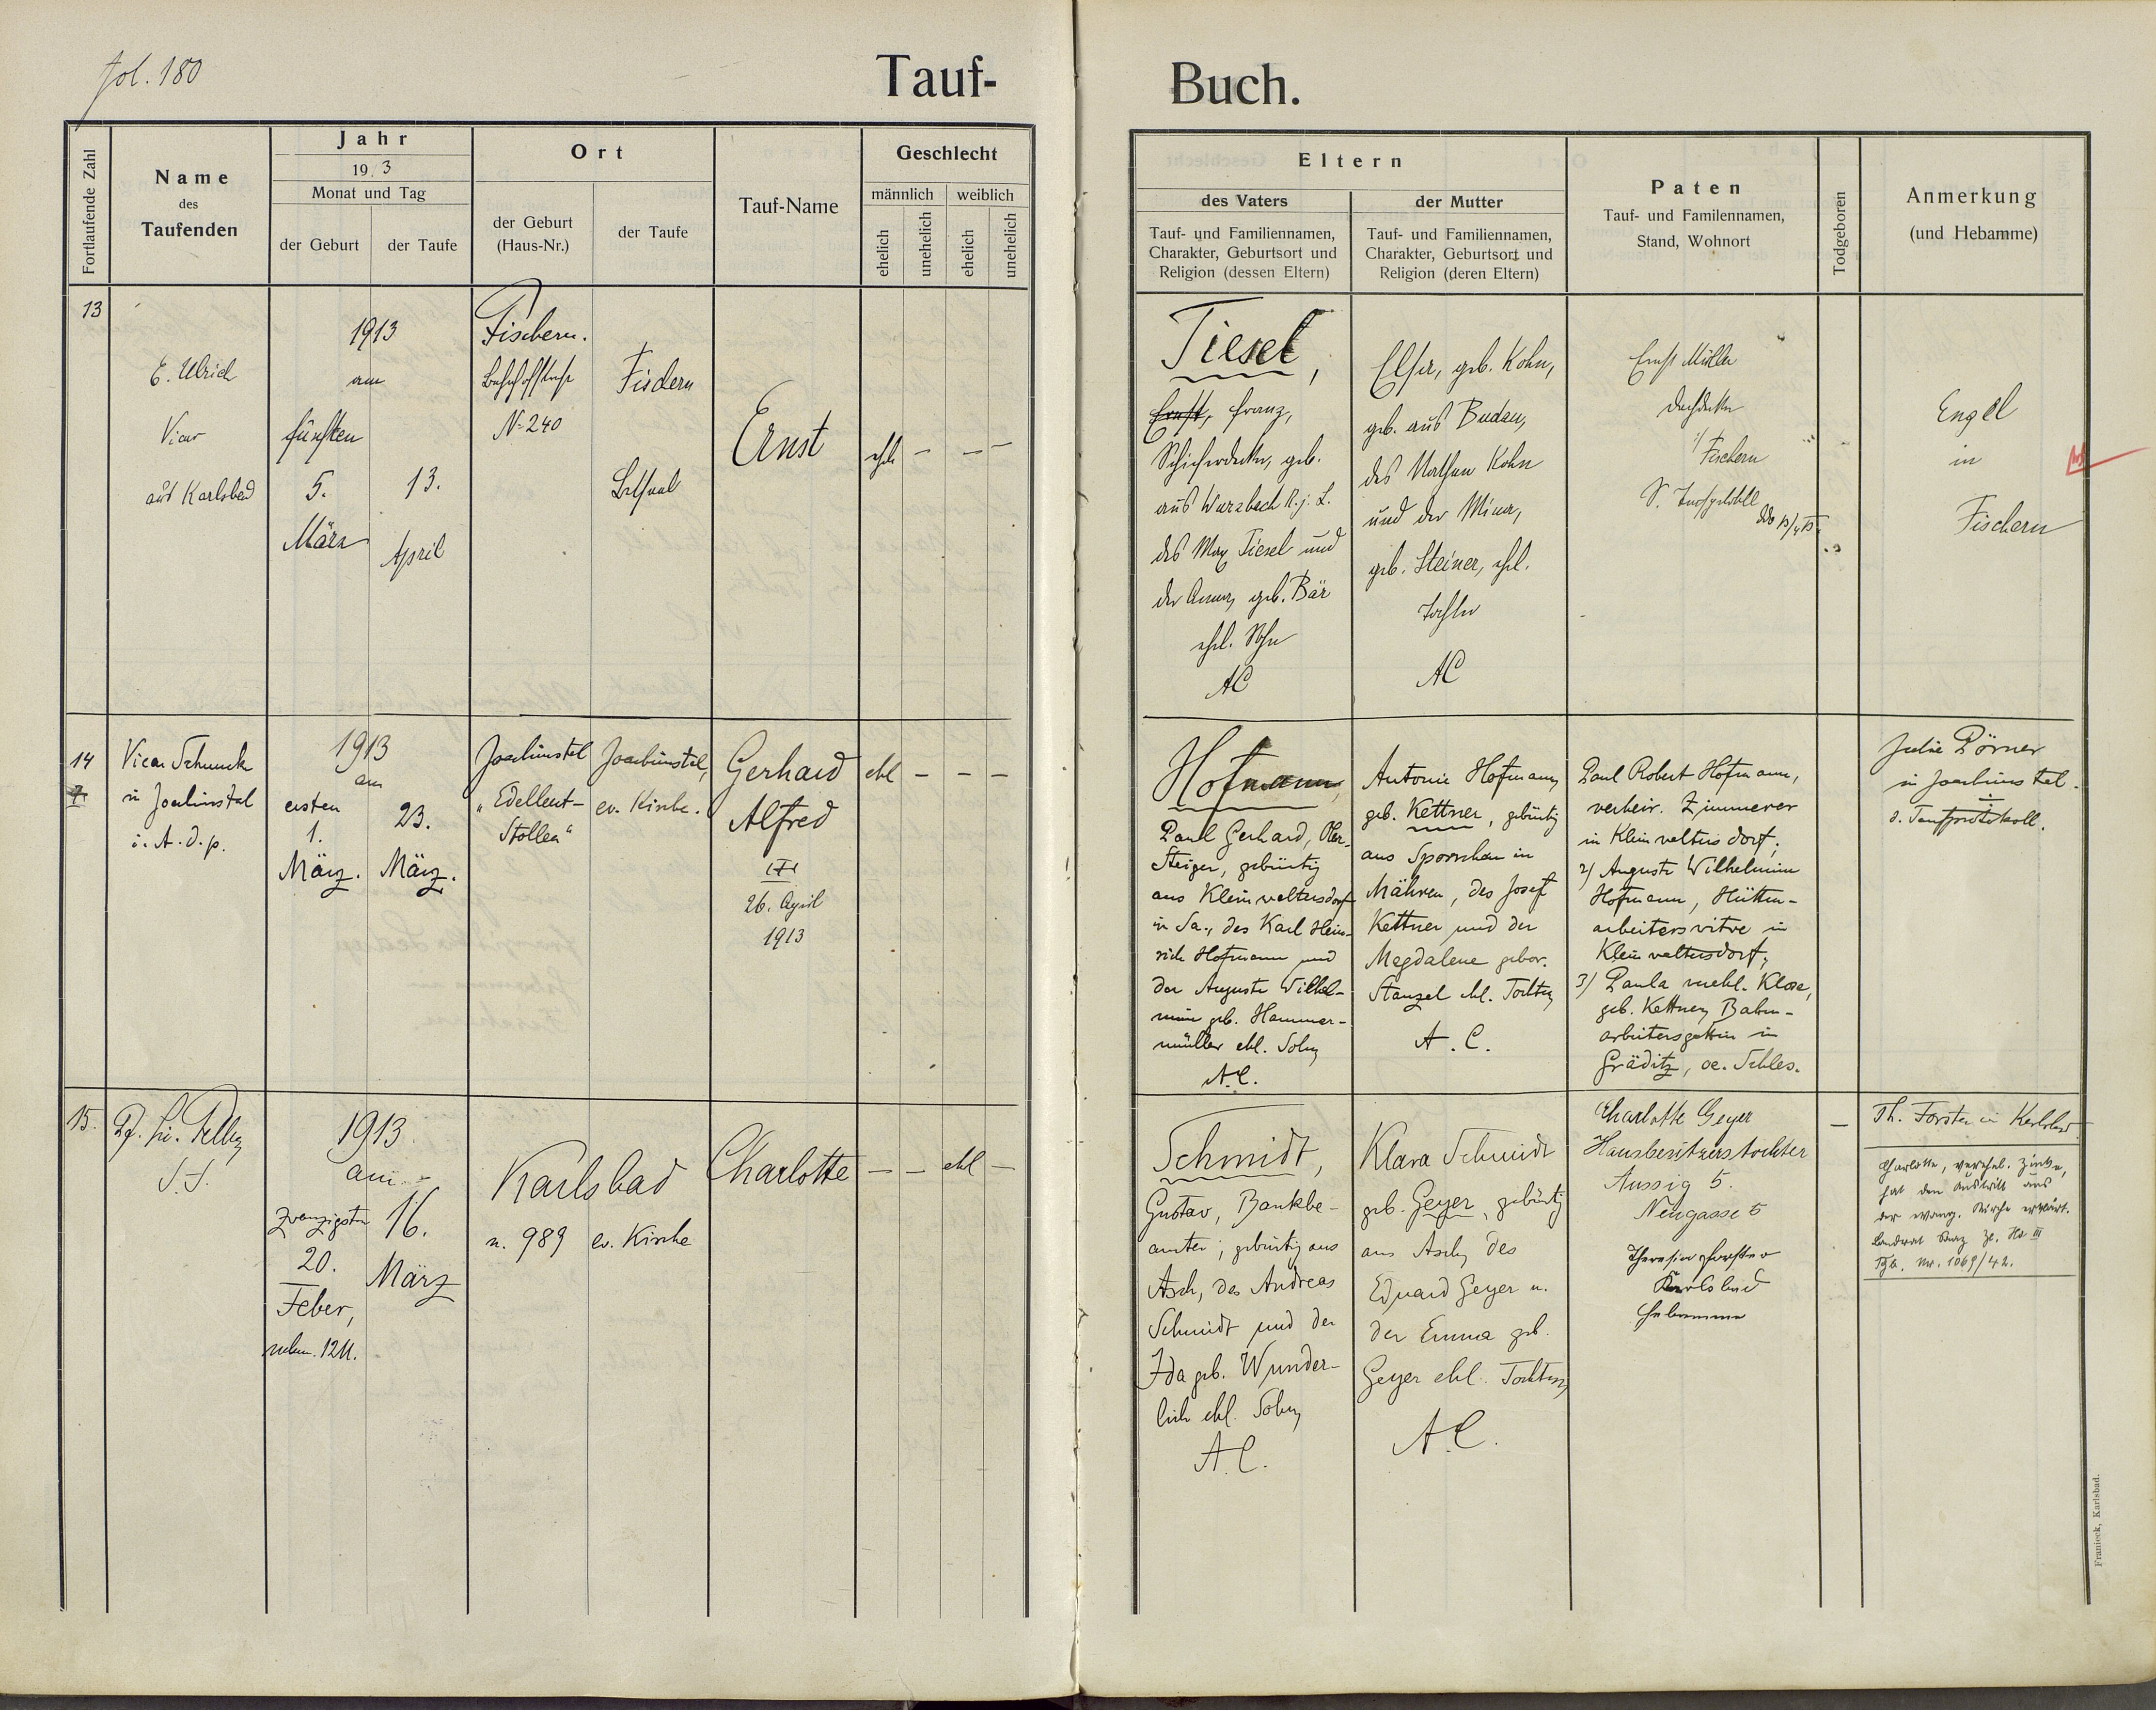 fol. 180
Tauf-
Buch.
Fortlaufende Zahl
Name
des
Taufenden
Jahr
1913
Monat und Tag
der Geburt
der Taufe
Ort
der Geburt
(Haus-Nr.)
der Taufe
Tauf-Name
Geschlecht
männlich
weiblich
ehelich
unehelich
ehelich
unehelich
Eltern
des Vaters
Tauf- und Familiennamen,
Charakter, Geburtsort und
Religion (dessen Eltern)
der Mutter
Tauf- und Familiennamen,
Charakter, Geburtsort und
Religion (deren Eltern)
Paten
Tauf- und Familennamen,
Stand, Wohnort
Todgeboren
Anmerkung
(und Hebamme)
13
E. Ulrich
Vicar
aus Karlsbad
1913
am
fünften
5.
März
13.
April
Fischern.
Bahnhofstraße
N. 240
Fischern
Betsaal
Ernst
ehl. - - -
Tiesel,
Ernst, Franz,
Schieferdecker, geb.
aus Wurzbach R. j. L.
des Max Tiesel und
der Anna, geb. Bär
ehl. Sohn
AC
Elsa, geb. Kohn,
geb. aus Budau,
des Nathan Kohn
und der Mina,
geb. Steiner, ehl.
Tochter
AC
Ernst Müller
Dachdecker
Fischern
Engel
in
Fischern
14
Vicar Schmuck
in Joachimstal
i. A. d. p.
1913
am
ersten
1.
März.
23.
März.
Joachimstal
"Edelleut-
Stollen"
Joachimstal,
ev. Kirche.
Gerhard
Alfred
26. April
1913
ehl - - -
Hofmann,
Paul Gerhard, Ober-
Steiger, gebürtig
aus Kleinwaltersdorf
in Sa., des Karl Hein-
rich Hofmann und
der Auguste Wilhel-
mine geb. Hammer-
müller ehl. Sohn,
A.C.
Antonie Hofmann,
geb. Kettner, gebürtig
aus Spornhau in
Mähren, des Josef
Kettner und der
Magdalene gebor.
Stanzel ehl. Tochter,
A. C.
Paul Robert Hofmann,
verheir. Zimmerer
in Kleinwaltersdorf;
2) Auguste Wilhelmine
Hofmann, Hütten-
arbeiterswitwe in
Kleinwaltersdorf;
3) Paula verehl. Klose,
geb. Kettner, Bahn-
arbeitersgattin in
Gräditz, oe. Schles.
Julie Pörner
in Joachimstal.
s. Taufprotokoll.
15.
1913
am
zwanzigsten
20.
Feber,
nachm. 12 U.
16.
März
Karlsbad
n. 989
ev. Kirche
Charlotte
- - ehl -
Schmidt,
Gustav, Bankbe-
amter, gebürtig aus
Asch, des Andreas
Schmidt und der
Ida geb. Wunder-
lich ehl. Sohn,
A.C.
Klara Schmidt
geb. Geyer, gebürtig
aus Asch, des
Eduard Geyer u.
der Emma geb.
Geyer ehl. Tochter,
A.C.
Charlotte Geyer
Hausbesitzerstochter
Aussig 5.
Neugasse 5
Theresia Forster
Karlsbad
Hebamme
-
Th. Forster in Karlsbad.
Charlotte, verehel. Zinke,
hat den Austritt aus
der evang. Kirche erklärt.
Tgb. Nr. 1069/42.
Franieck, Karlsbad.